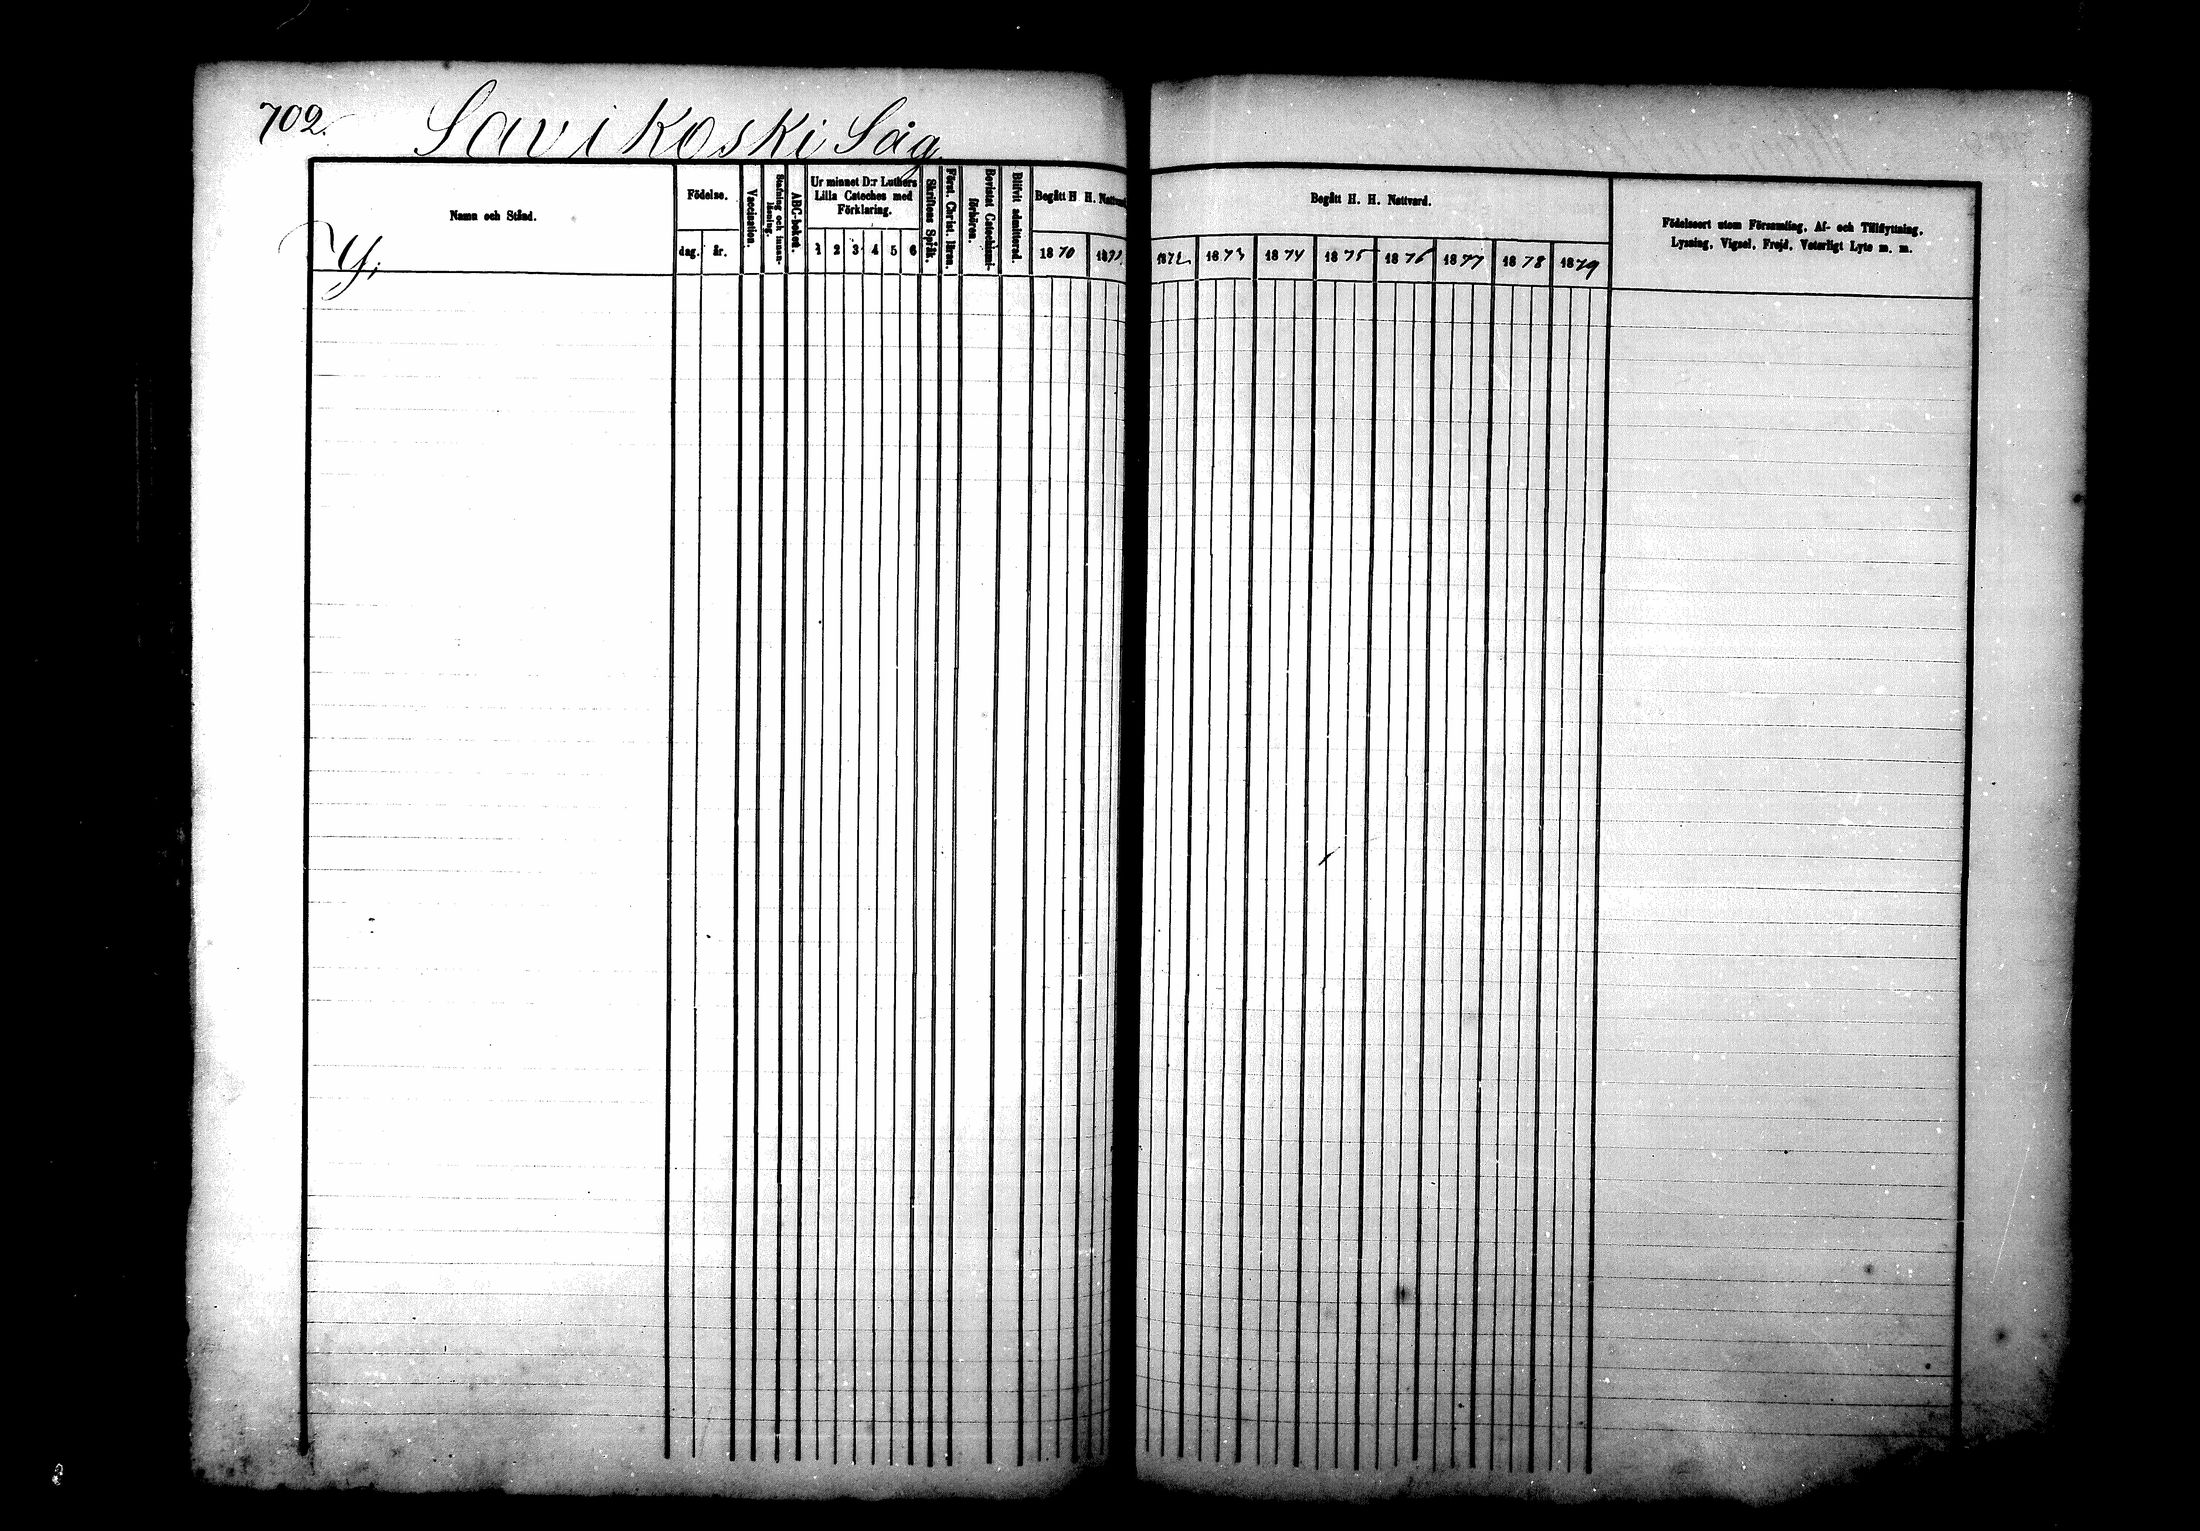 702.
Savikoski Såg
Namn och Stånd.
Y;
Födelse.
dag. år.
Vaccination.
Stafning och innan-
läsning.
ABC-boken.
Ur minnet D:r Luthers
Lilla Cateches med
Förklaring.
1 2 3 4 5 6
Skriftens Språk.
Först. Christ. läran.
Bevistat Catechismi-
förhören.
Blifvit admitterad.
Begått H. H. Nattvard
1870 1871
Begått H. H. Nattvard.
1872 1873 1874 1875 1876 1877 1878 1879
Födelseort utom Församling, Af- och Tillflyttning,
Lysning, Vigsel, Frejd, Veterligt Lyte m. m.